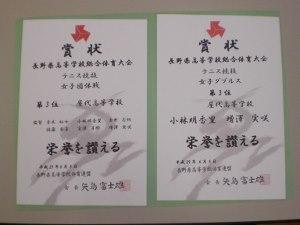 賞状
長野県高等学校総合体育大会
テニス競技
女子団体戦
第3位 屋代高等学校
栄誉を讃える
平成25年6月
長野県高等学校体育連盟
会長 矢島富士雄
賞状
長野県高等学校総合体育大会
テニス競技
女子ダブルス
第3位
屋代高等学校
小林明香里 増澤実咲
栄誉を讃える
平成25年6月
長野県高等学校体育連盟
会長 矢島富士雄